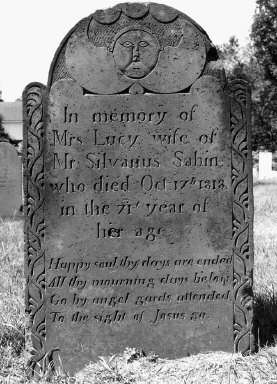 In memory of
Mrs Lucy, wife of
Mr. Silvanus Sabin,
who died Oct. 17th. 1818.
in the 71st. year of
her age.
Happy soul thy days are ended
All thy mourning days below
Go by angel gards attended
To the sight of Jesus go.